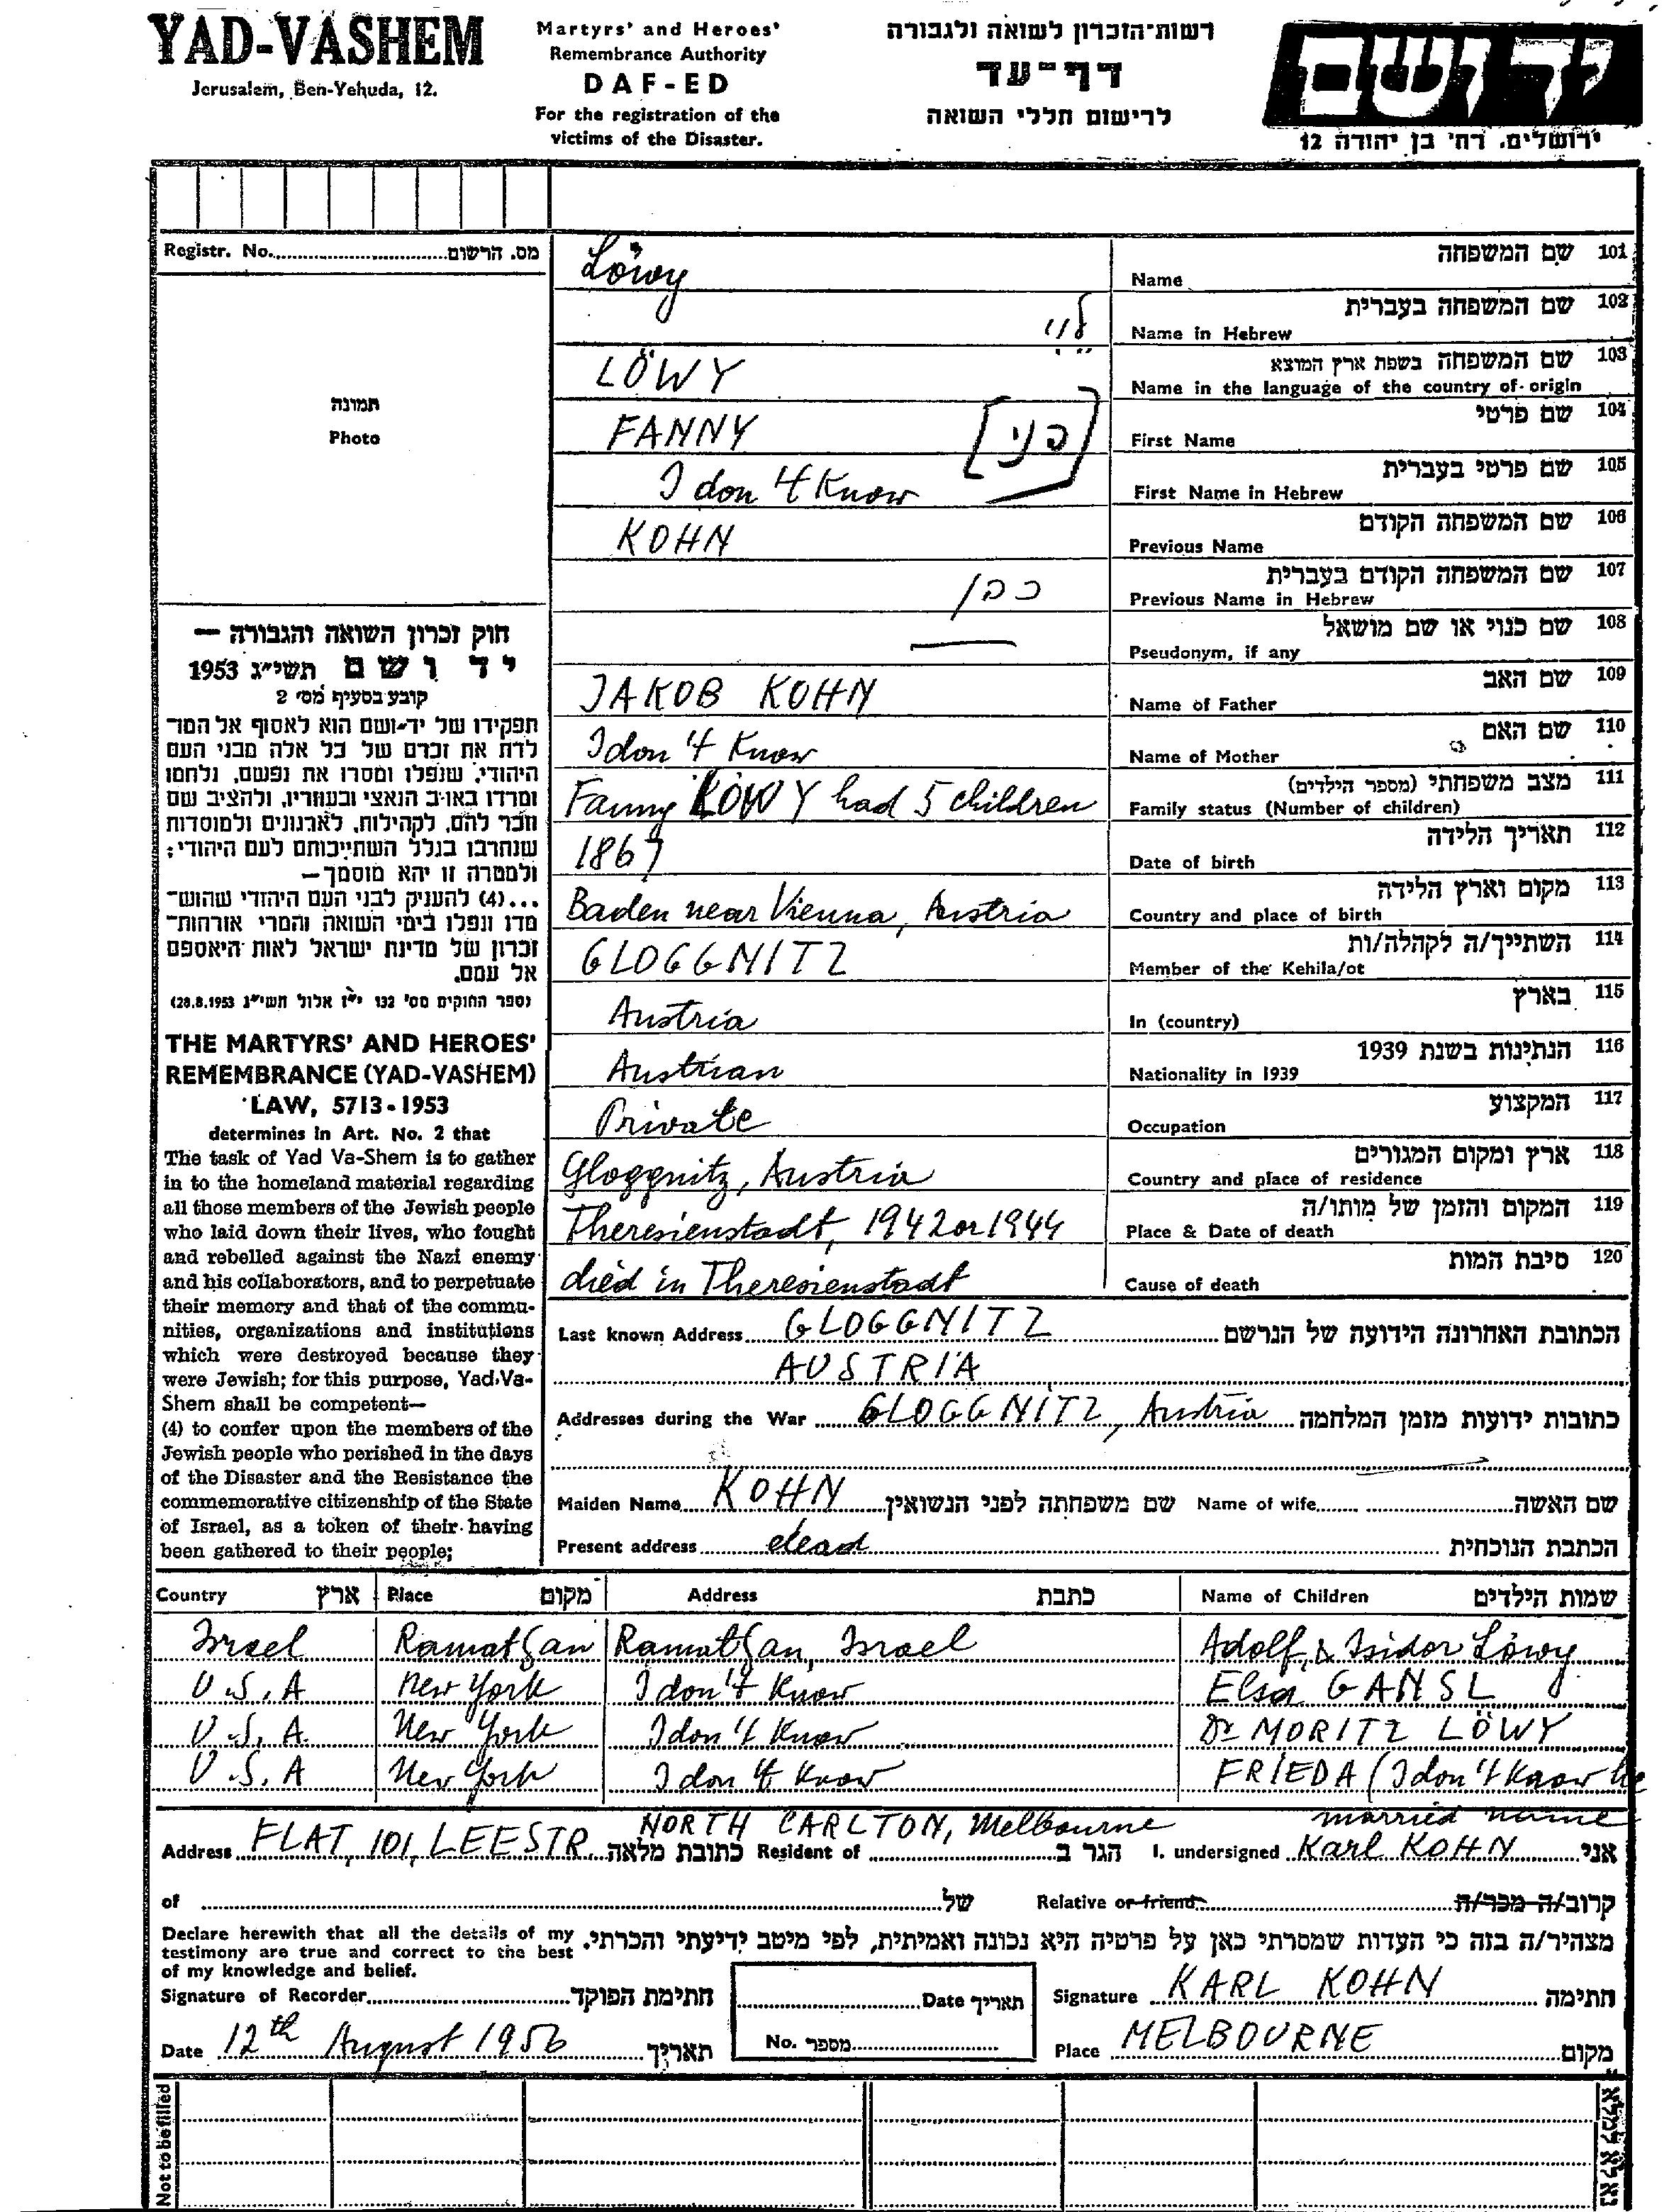 YAD-VASHEM
Jerusalem, Ben-Yehuda, 12.
Martyrs' and Heroes'
Remembrance Authority
DAF-ED
For the registration of the
victims of the Disaster.
רשות־הזכרון לשואה ולגבורה
דף־עד
לרישום חללי השואה
יד ושם
ירושלים, רח' בן יהודה 12
Registr. No. מס. הרשום
תמונה
Photo
חוק זכרון השואה והגבורה —
יד ושם תשי״ג 1953
קובע בסעיף מס' 2
תפקידו של יד־ושם הוא לאסוף אל המו־
לדת את זכרם של כל אלה מבני העם
היהודי, שנפלו ומסרו את נפשם, נלחמו
ומרדו באויב הנאצי ובעוזריו, ולהציב שם
וזכר להם, לקהילות, לארגונים ולמוסדות
שנחרבו בגלל השתייכותם לעם היהודי;
ולמטרה זו יהא מוסמך —
...(4) להעניק לבני העם היהודי שהוש־
מדו ונפלו בימי השואה והמרי אזרחות־
זכרון של מדינת ישראל לאות היאספם
אל עמם.
(ספר החוקים מס' 132 י״ז אלול תשי״ג 28.8.1953)
THE MARTYRS' AND HEROES'
REMEMBRANCE (YAD-VASHEM)
LAW, 5713-1953
determines in Art. No. 2 that
The task of Yad Va-Shem is to gather
in to the homeland material regarding
all those members of the Jewish people
who laid down their lives, who fought
and rebelled against the Nazi enemy
and his collaborators, and to perpetuate
their memory and that of the commu-
nities, organizations and institutions
which were destroyed because they
were Jewish; for this purpose, Yad-Va-
Shem shall be competent—
(4) to confer upon the members of the
Jewish people who perished in the days
of the Disaster and the Resistance the
commemorative citizenship of the State
of Israel, as a token of their having
been gathered to their people;
Löwy Name שם המשפחה 101
לוי Name in Hebrew שם המשפחה בעברית 102
LÖWY Name in the language of the country of origin שם המשפחה בשפת ארץ המוצא 103
FANNY [פני] First Name שם פרטי 104
I don't Know First Name in Hebrew שם פרטי בעברית 105
KOHN Previous Name שם המשפחה הקודם 106
כהן Previous Name in Hebrew שם המשפחה הקודם בעברית 107
— Pseudonym, if any שם כנוי או שם מושאל 108
JAKOB KOHN Name of Father שם האב 109
I don't Know Name of Mother שם האם 110
Fanny LÖWY had 5 children Family status (Number of children) מצב משפחתי (מספר הילדים) 111
1867 Date of birth תאריך הלידה 112
Baden near Vienna, Austria Country and place of birth מקום וארץ הלידה 113
GLOGGNITZ Member of the Kehila/ot השתייך/ה לקהלה/ות 114
Austria In (country) בארץ 115
Austrian Nationality in 1939 הנתינות בשנת 1939 116
Private Occupation המקצוע 117
Gloggnitz, Austria Country and place of residence ארץ ומקום המגורים 118
Theresienstadt, 1942 or 1944 Place & Date of death המקום והזמן של מותו/ה 119
died in Theresienstadt Cause of death סיבת המות 120
Last known Address GLOGGNITZ הכתובת האחרונה הידועה של הנרשם
AUSTRIA
Addresses during the War GLOGGNITZ, Austria כתובות ידועות מזמן המלחמה
Maiden Name KOHN שם משפחתה לפני הנשואין Name of wife שם האשה
Present address dead הכתבת הנוכחית
Country ארץ Place מקום Address כתבת Name of Children שמות הילדים
Israel Ramat Gan Ramat Gan, Israel Adolf, & Isidor Löwy
U.S.A New York I don't Know Elsa GANSL
U.S.A. New York I don't Know Dr MORITZ LÖWY
U.S.A New York I don't Know FRIEDA (I don't Know he
NORTH CARLTON, Melbourne married name
Address FLAT, 101, LEE STR. כתובת מלאה Resident of הגר ב I, undersigned Karl KOHN אני
of של Relative or friend קרוב/ה מכר/ה
Declare herewith that all the details of my
testimony are true and correct to the best
of my knowledge and belief.
מצהיר/ה בזה כי העדות שמסרתי כאן על פרטיה היא נכונה ואמיתית, לפי מיטב ידיעתי והכרתי.
Signature of Recorder חתימת הפוקד Date תאריך Signature KARL KOHN חתימה
Date 12th August 1956 תאריך No. מספר Place MELBOURNE מקום
Not to be filled
נא לא למלא